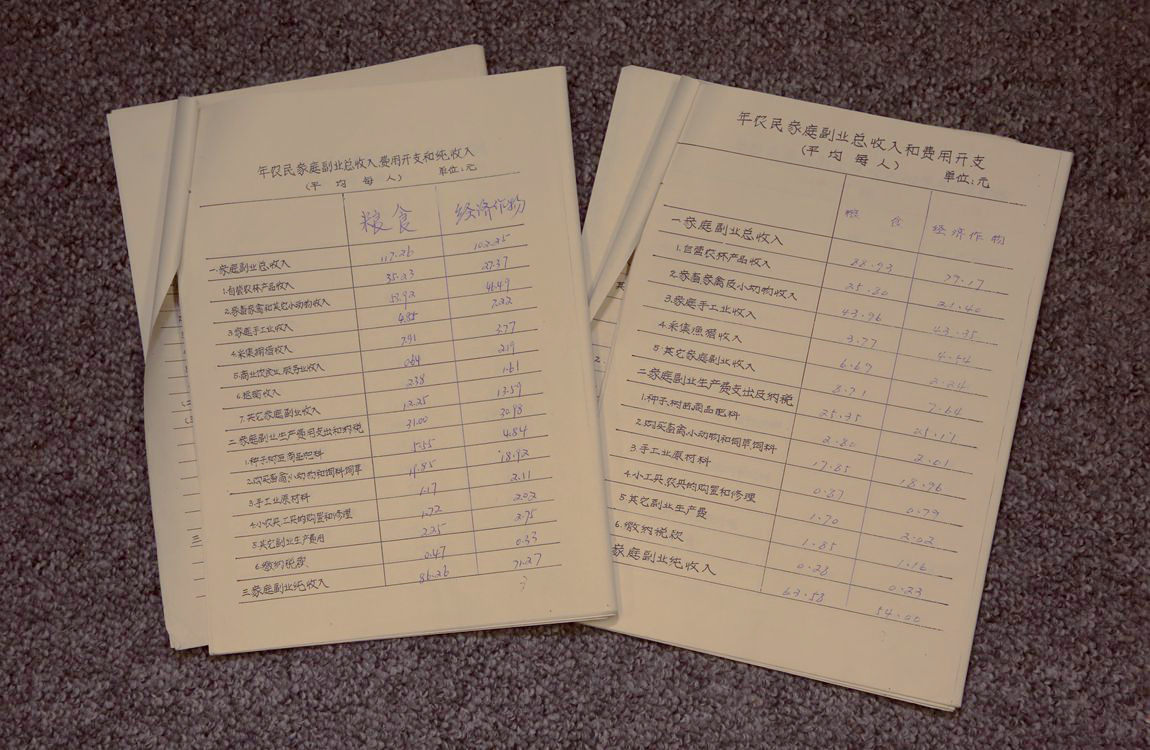 年农民家庭副业总收入费用开支和纯收入
(平均每人) 单位:元
粮食 经济作物
一.家庭副业总收入 117.26 102.25
1.自营农林产品收入 35.23 27.37
2.家畜家禽和其它小动物收入 53.92 46.49
3.家庭手工业收入 4.85 7.22
4.采集捕猎收入 7.91 3.77
5.商业饮食业、服务业收入 0.64 2.19
6.运输收入 2.38 1.61
7.其它家庭副业收入 12.25 13.59
二.家庭副业生产费用支出和纳税 31.00 30.98
1.种子树苗商品肥料 5.55 4.84
2.购买畜禽小动物和饲料饲草 19.85 18.92
3.手工业原材料 1.17 2.11
4.小农具、工具的购置和修理 1.72 2.02
5.其它副业生产费用 2.25 2.75
6.缴纳税款 0.47 0.33
三.家庭副业纯收入 86.26 71.27
年农民家庭副业总收入和费用开支
(平均每人) 单位:元
粮食 经济作物
一.家庭副业总收入 88.93 79.17
1.自营农林产品收入 25.80 21.40
2.家畜家禽及小动物收入 43.96 43.35
3.家庭手工业收入 3.77 4.54
4.采集渔猎收入 6.69 2.24
5.其它家庭副业收入 8.71 7.64
二.家庭副业生产费支出及纳税 25.35 25.17
1.种子、树苗商品肥料 2.80 2.01
2.购买畜禽、小动物和饲草、饲料 17.85 18.96
3.手工业原材料 0.87 0.79
4.小工具、农具的购置和修理 1.70 2.02
5.其它副业生产费 1.85 1.16
6.缴纳税款 0.28 0.23
家庭副业纯收入 63.58 54.00